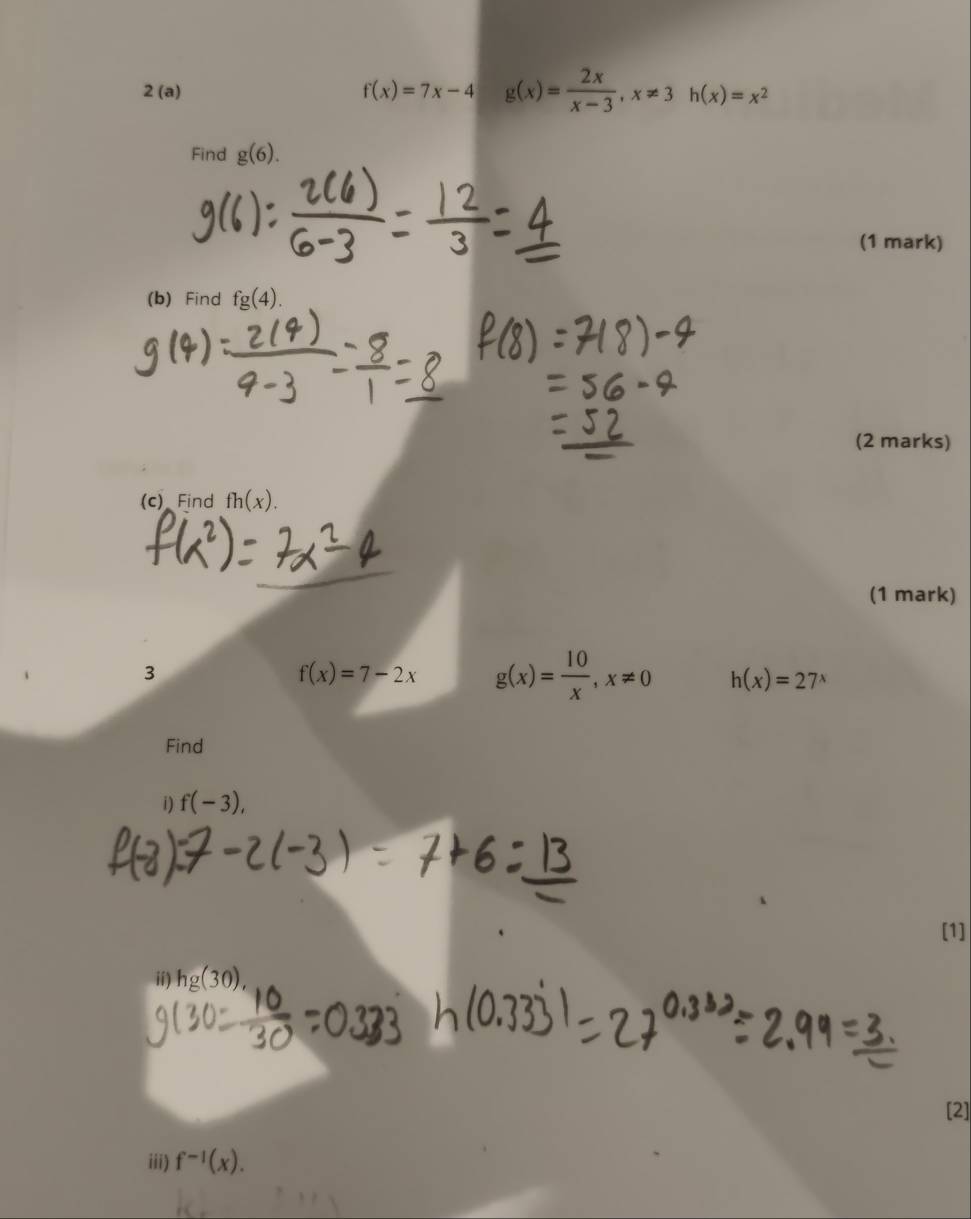 2 (a) f(x) = 7x − 4 g(x) = 2x/(x − 3), x ≠ 3 h(x) = x²
Find g(6).
g(6) = 2(6)/(6-3) = 12/3 = 4
(1 mark)
(b) Find fg(4).
g(4) = 2(4)/(4-3) = 8/1 = 8 f(8) = 7(8) - 4
= 56 - 4
= 52
(2 marks)
(c) Find fh(x).
f(x²) = 7x² - 4
(1 mark)
3 f(x) = 7 − 2x g(x) = 10/x, x ≠ 0 h(x) = 27ˣ
Find
i) f(−3),
f(-3) = 7 - 2(-3) = 7 + 6 = 13
[1]
ii) hg(30),
g(30 = 10/30 = 0.333̇ h(0.333̇) = 27^0.333 = 2.99 = 3.
[2]
iii) f⁻¹(x).